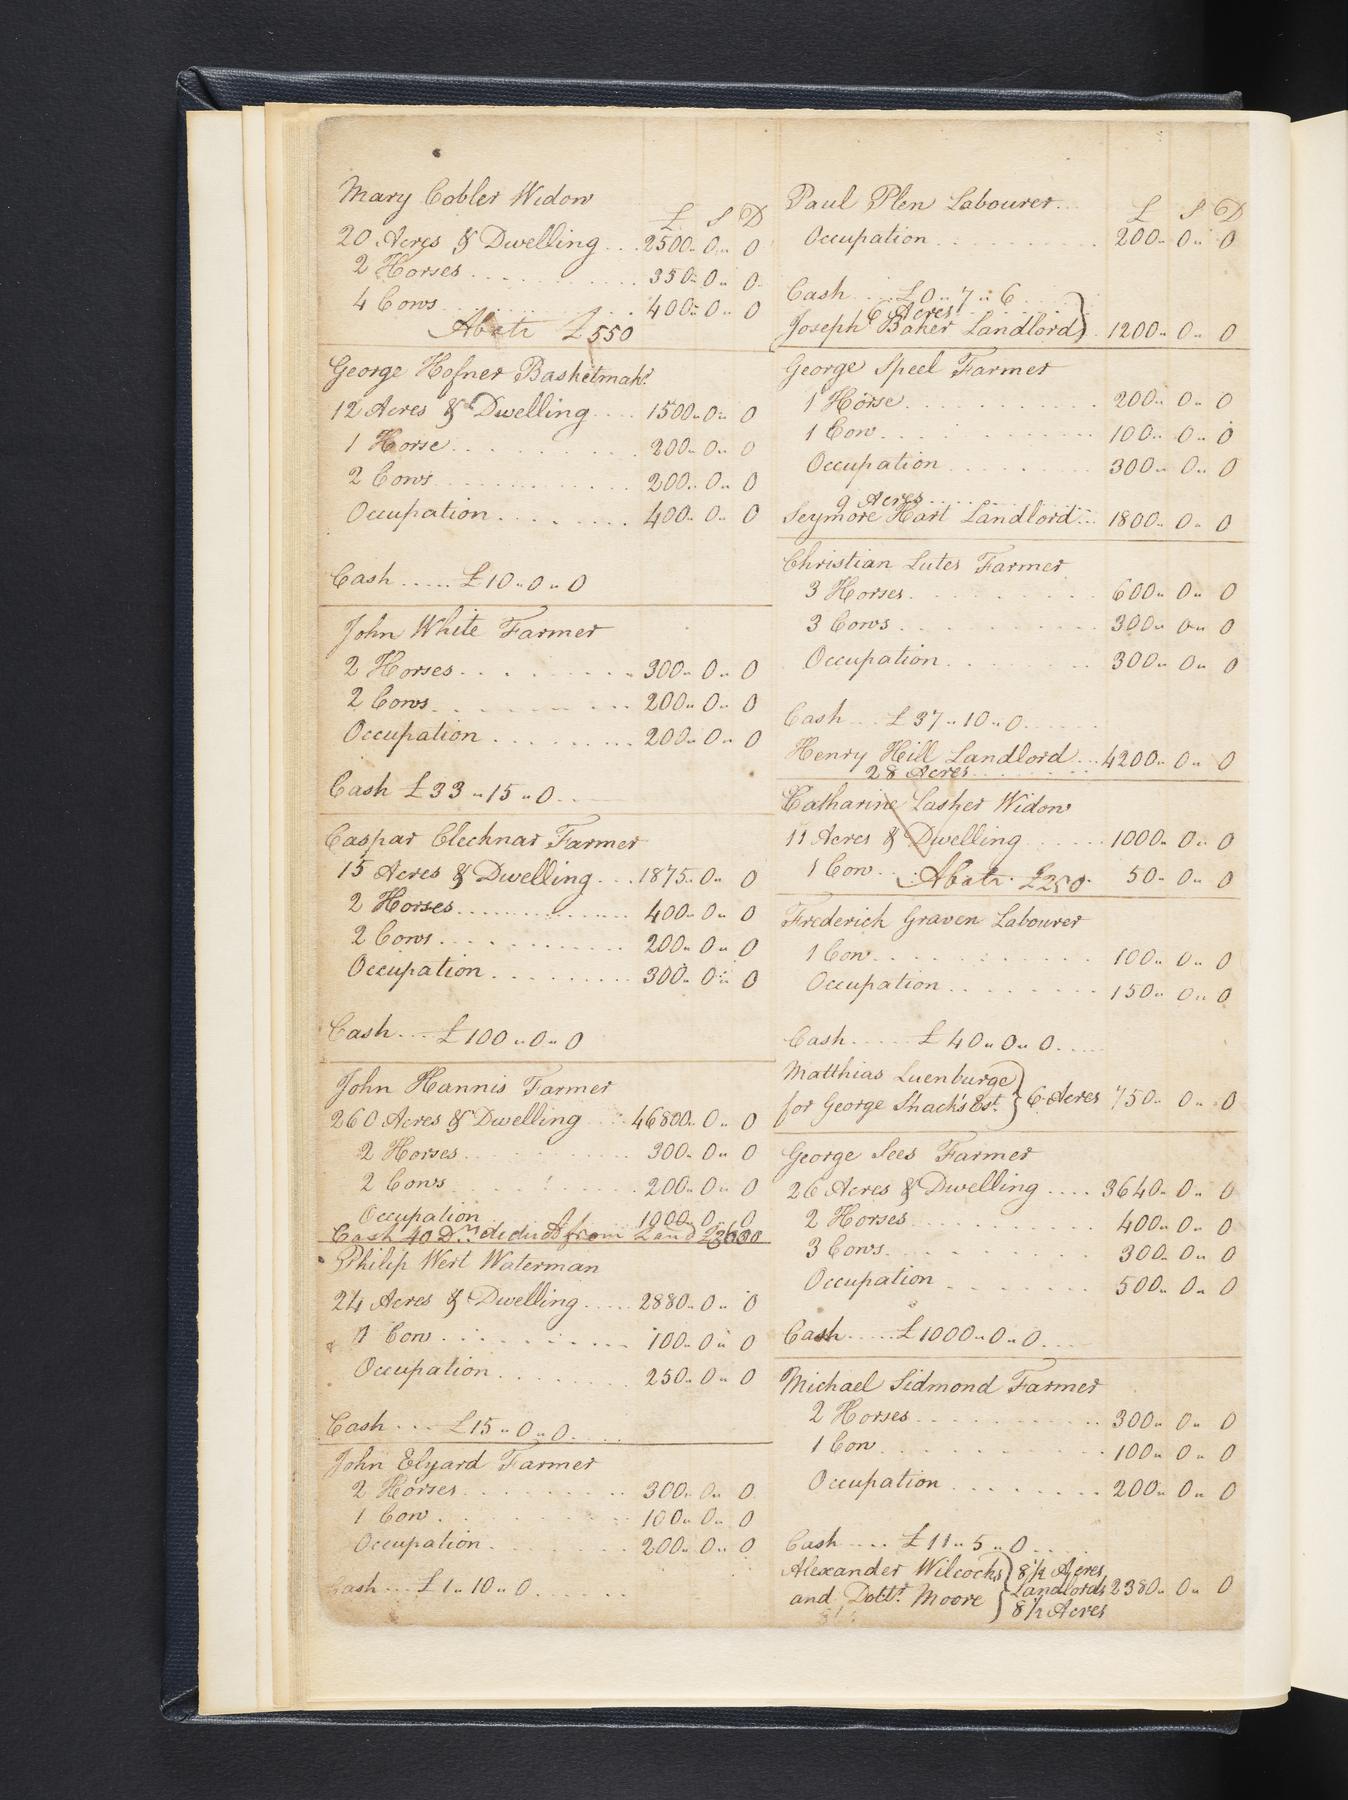 Mary Cobler Widow
£ S D
20 Acres & Dwelling ... 2500 .. 0 .. 0
2 Horses ... 350 .. 0 .. 0
4 Cows ... 400 .. 0 .. 0
Abate £550
George Hofner Basketmakr
12 Acres & Dwelling .... 1500 .. 0 .. 0
1 Horse ... 200 .. 0 .. 0
2 Cows ... 200 .. 0 .. 0
Occupation ... 400 .. 0 .. 0
Cash ..... £10 .. 0 .. 0
John White Farmer
2 Horses ... 300 .. 0 .. 0
2 Cows ... 200 .. 0 .. 0
Occupation ... 200 .. 0 .. 0
Cash £33 .. 15 .. 0
Caspar Clecknar Farmer
15 Acres & Dwelling ... 1875 .. 0 .. 0
2 Horses ... 400 .. 0 .. 0
2 Cows ... 200 .. 0 .. 0
Occupation ... 300 .. 0 .. 0
Cash ... £100 .. 0 .. 0
John Hannis Farmer
260 Acres & Dwelling ... 46800 .. 0 .. 0
2 Horses ... 300 .. 0 .. 0
2 Cows ... 200 .. 0 .. 0
Occupation ... 1000 .. 0 .. 0
Cash 40 Drs deduct from Land £3600
Philip Wert Waterman
24 Acres & Dwelling ..... 2880 .. 0 .. 0
1 Cow ... 100 .. 0 .. 0
Occupation ... 250 .. 0 .. 0
Cash ... £15 .. 0 .. 0
John Elyard Farmer
2 Horses ... 300 .. 0 .. 0
1 Cow ... 100 .. 0 .. 0
Occupation ... 200 .. 0 .. 0
Cash ... £1 .. 10 .. 0
Paul Plen Labourer ...
£ S D
Occupation ... 200 .. 0 .. 0
Cash ... £0 .. 7 .. 6
6 Acres
Joseph Baker Landlord } 1200 .. 0 .. 0
George Speel Farmer
1 Horse ... 200 .. 0 .. 0
1 Cow ... 100 .. 0 .. 0
Occupation ... 300 .. 0 .. 0
9 Acres ...
Seymore Hart Landlord ... 1800 .. 0 .. 0
Christian Lutes Farmer
3 Horses ... 600 .. 0 .. 0
3 Cows ... 300 .. 0 .. 0
Occupation ... 300 .. 0 .. 0
Cash ... £37 .. 10 .. 0
Henry Hill Landlord ... 4200 .. 0 .. 0
28 Acres ...
Catharine Lasher Widow
11 Acres & Dwelling ... 1000 .. 0 .. 0
1 Cow ... Abate £250 50 .. 0 .. 0
Frederick Graven Labourer
1 Cow ... 100 .. 0 .. 0
Occupation ... 150 .. 0 .. 0
Cash ..... £40 .. 0 .. 0
Matthias Luenburge
for George Shack's Est. } 6 Acres 750 .. 0 .. 0
George Sees Farmer
26 Acres & Dwelling .... 3640 .. 0 .. 0
2 Horses ... 400 .. 0 .. 0
3 Cows ... 300 .. 0 .. 0
Occupation ... 500 .. 0 .. 0
Cash ..... £1000 .. 0 .. 0
Michael Sidmond Farmer
2 Horses ... 300 .. 0 .. 0
1 Cow ... 100 .. 0 .. 0
Occupation ... 200 .. 0 .. 0
Cash .... £11 .. 5 .. 0
Alexander Wilcocks } 8 1/2 Acres
Landlords 2380 .. 0 .. 0
and Doctr. Moore } 8 1/2 Acres